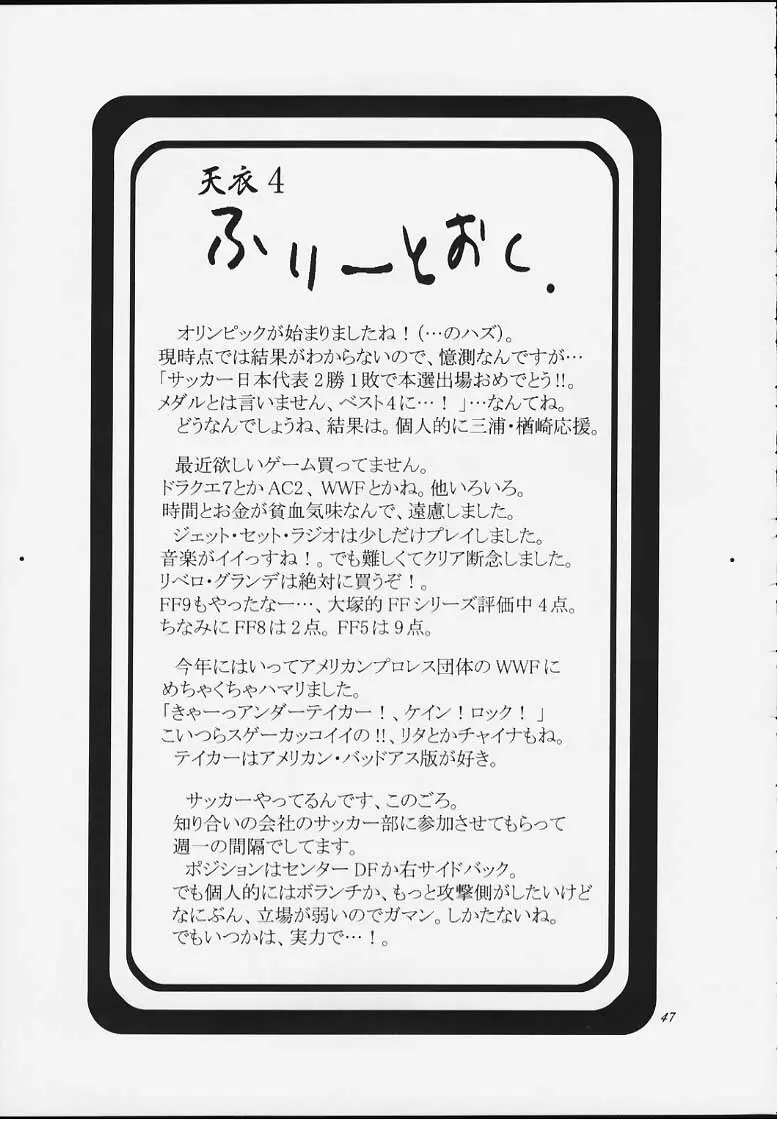 天衣4
ふりーとおく.
オリンピックが始まりましたね！(…のハズ)。
現時点では結果がわからないので、憶測なんですが…
「サッカー日本代表2勝1敗で本選出場おめでとう!!。
メダルとは言いません、ベスト4に…！」…なんてね。
どうなんでしょうね、結果は。個人的に三浦・楢崎応援。
最近欲しいゲーム買ってません。
ドラクエ7とかAC2、WWFとかね。他いろいろ。
時間とお金が貧血気味なんで、遠慮しました。
ジェット・セット・ラジオは少しだけプレイしました。
音楽がイイっすね！。でも難しくてクリア断念しました。
リベロ・グランデは絶対に買うぞ！。
FF9もやったなー…、大塚的FFシリーズ評価中4点。
ちなみにFF8は2点。FF5は9点。
今年にはいってアメリカンプロレス団体のWWFに
めちゃくちゃハマリました。
「きゃーっアンダーテイカー！、ケイン！ロック！」
こいつらスゲーカッコイイの!!、リタとかチャイナもね。
テイカーはアメリカン・バッドアス版が好き。
サッカーやってるんです、このごろ。
知り合いの会社のサッカー部に参加させてもらって
週一の間隔でしてます。
ポジションはセンターDFか右サイドバック。
でも個人的にはボランチか、もっと攻撃側がしたいけど
なにぶん、立場が弱いのでガマン。しかたないね。
でもいつかは、実力で…！。
47